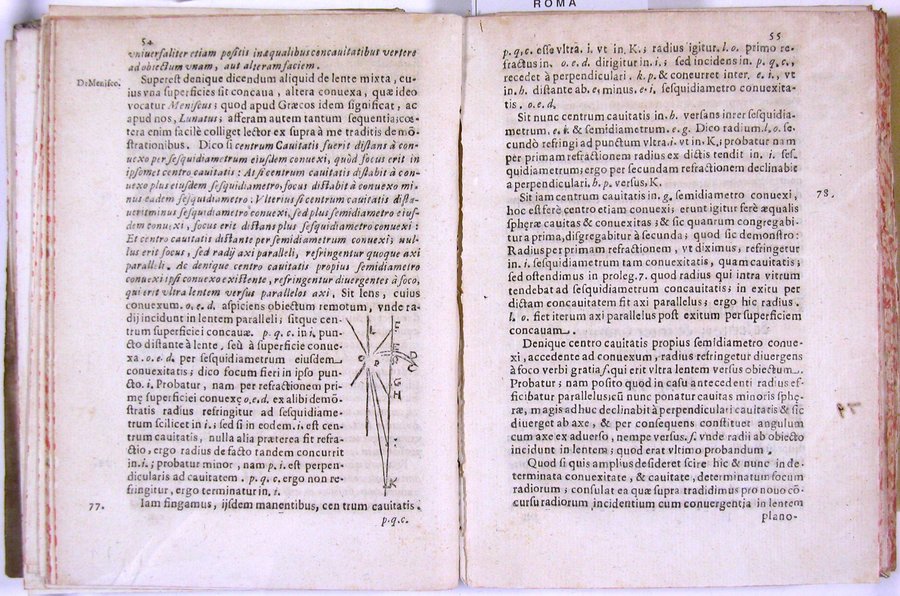 ROMA
54
vniuersaliter etiam positis inæqualibus concauitatibut vertere
ad obiectum vnam, aut alteram faciem.
De Menisco.
Superest denique dicendum aliquid de lente mixta, cu-
ius vna superficies sit concaua, altera conuexa, quæ ideo
vocatur Meniscus; quod apud Græcos idem significat, ac
apud nos, Lunatus; afferam autem tantum sequentia; cœ-
tera enim facilè colliget lector ex supra à me traditis demõ-
strationibus. Dico si centrum Cauitatis fuerit distans à con-
uexo per sesquidiametrum eiusdem conuexi, quòd focus erit in
ipsomet centro cauitatis: At si centrum cauitatis distabit à con-
uexo plus eiusdem sesquidiametro, focus distabit à conuexo mi-
nus eadem sesquidiametro: Vlterius si centrum cauitatis dista-
uerit minus sesquidiametro conuexi, sed plus semidiametro eius-
dem conuexi, focus erit distans plus sesquidiametro conuexi:
Et centro cauitatis distante per semidiametrum conuexi; nul-
lus erit focus, sed radij axi paralleli, refringentur quoque axi
paralleli. Ac denique centro cauitatis propius semidiametro
conuexi ipsi conuexo existente, refringetur diuergentes à foco,
qui erit vltra lentem versus parallelos axi. Sit lens, cuius
conuexum. o. e. d. aspiciens obiectum remotum, vnde ra-
dij incidunt in lentem paralleli; sitque cen-
trum superficiei concauæ. p. q. c. in i. pun-
cto distante à lente, seù à superficie conue-
xa. o. e. d. per sesquidiametrum eiusdem
conuexitatis; dico focum fieri in ipso pun-
cto. i. Probatur, nam per refractionem pri-
mę superficiei conuexę o. e. d. ex alibi demõ-
stratis radius refringitur ad sesquidiame-
trum scilicet in i.; sed si in eodem. i. est cen-
trum cauitatis, nulla alia præterea fit refra-
ctio, ergo radius de facto tandem concurrit
in. i.; probatur minor, nam p. i. est perpen-
dicularis ad cauitatem. p. q. c. ergo non re-
fringitur, ergo terminatur in. i.
L F
C P E S D
G
H
i
K
77.
Iam fingamus, ijsdem manentibus, centrum cauitatis.
p. q. c.
55
p. q. c. esse vltra. i. vt in. K.; radius igitur. l. o. primo re-
fractus in. o. e. d. dirigitur in. i.; sed incidens in. p. q. c.,
recedet à perpendiculari. k. p. & concurret inter. e. i., vt
in. h. distante ab. e. minus. e. i. sesquidiametro conuexita-
tis. o. e. d.
Sit nunc centrum cauitatis in. h. versans inter sesquidia-
metrum. e. i. & semidiametrum. e. g. Dico radium. l. o. se-
cundò refringi ad punctum vltra. i. vt in. K.; probatur nam
per primam refractionem radius ex dictis tendit in. i. ses-
quidiametrum; ergo per secundam refractionem declinabit
a perpendiculari. h. p. versus. K.
78.
Sit iam centrum cauitatis in. g. semidiametro conuexi,
hoc est ferè centro etiam conuexi; erunt igitur ferè æqualis
spheræ cauitas & conuexitas; & sic quantum congregabi-
tur a prima, disgregabitur à secunda; quod sic demonstro:
Radius per primam refractionem, vt diximus, refringetur
in. i. sesquidiametrum tam conuexitatis, quam cauitatis;
sed ostendimus in proleg. 7. quod radius qui intra vitrum
tendebat ad sesquidiametrum concauitatis; in exitu per
dictam concauitatem fit axi parallelus; ergo hic radius.
l. o. fiet iterum axi parallelus post exitum per superficiem
concauam.
Denique centro cauitatis propius semidiametro conue-
xi, accedente ad conuexum, radius refringetur diuergens
à foco verbi gratia f. qui erit vltra lentem versus obiectum.
Probatur; nam posito quod in casu antecedenti radius ef-
ficibatur parallelus; cũ nunc ponatur cauitas minoris sphę-
ræ, magis adhuc declinabit à perpendiculari cauitatis & sic
diuerget ab axe, & per consequens constituet angulum
cum axe ex aduerso, nempe versus. f. vnde radii ab obiecto
incidunt in lentem; quod erat vltimo probandum.
Quod si quis amplius desideret scire hic & nunc in de-
terminata conuexitate, & cauitate, determinatum focum
radiorum; consulat ea quæ supra tradidimus pro nouo cõ-
cursu radiorum incidentium cum conuergentia in lentem
plano-